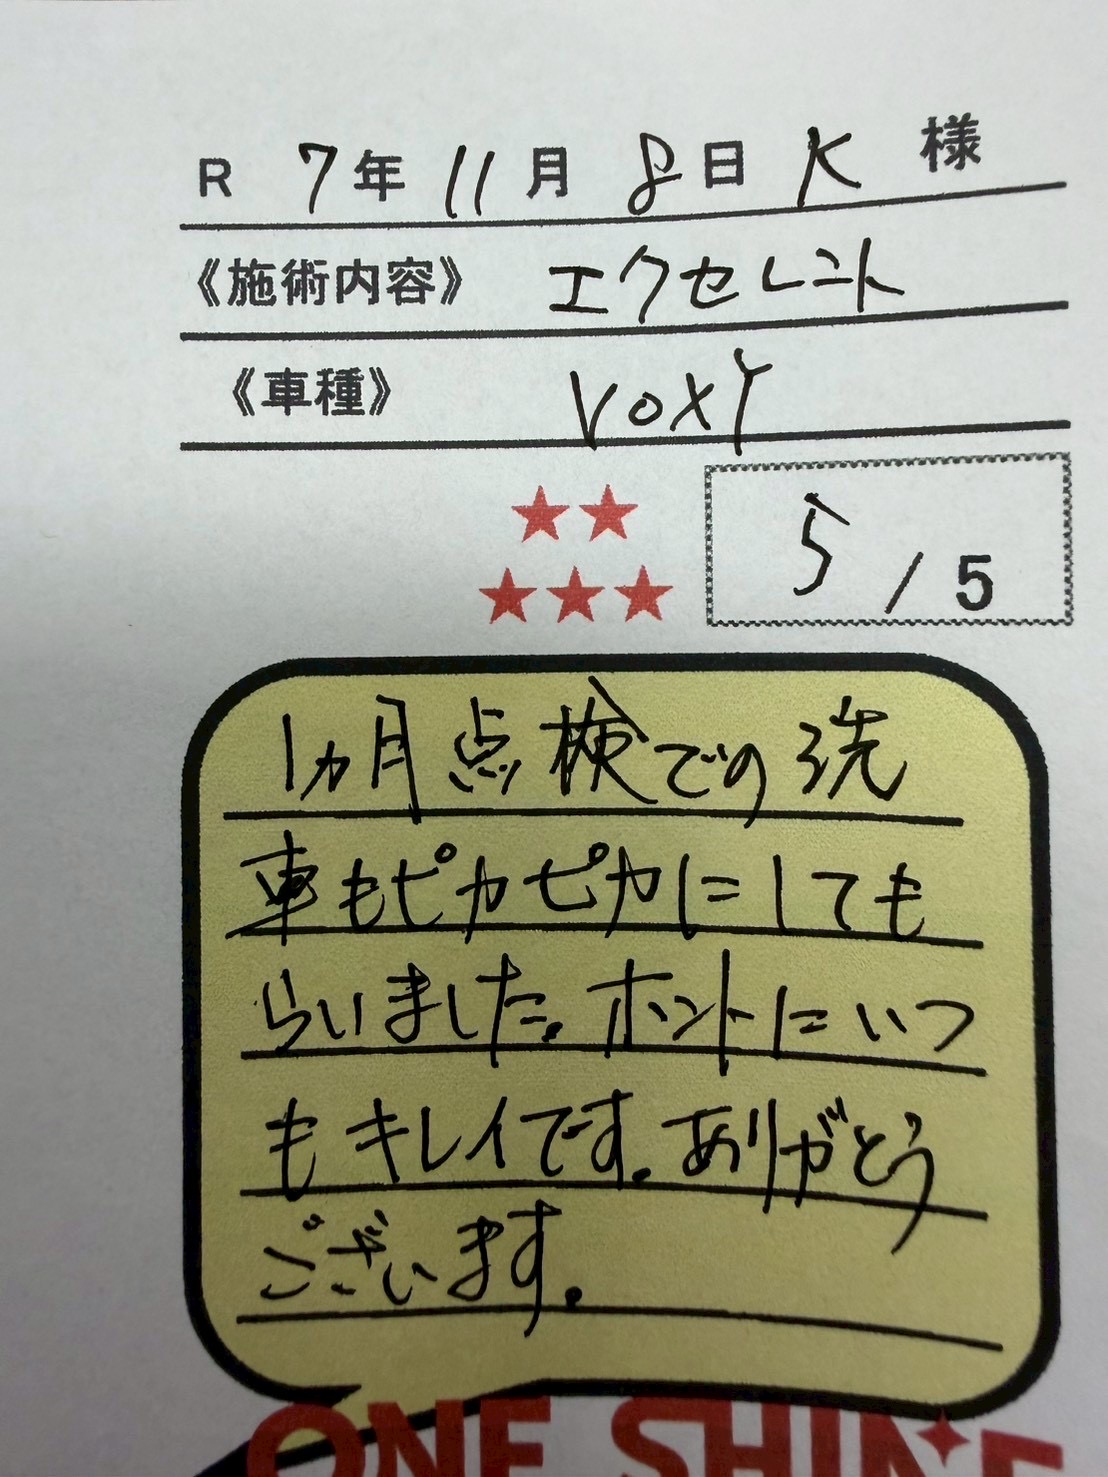 R 7年 11月 8日 K 様
《施術内容》 エクセレント
《車種》 VOXY
★★
★★★
5 / 5
1ヵ月点検での洗
車もピカピカにしても
らいました。ホントにいつ
もキレイです。ありがとう
ございます。
ONE SHINE